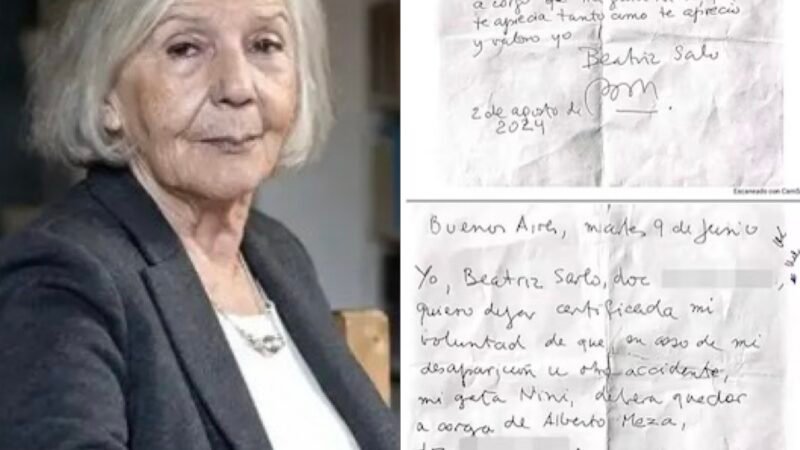 te aprecia tanto como te aprecio
y valoro yo
Beatriz Sarlo
2 de agosto de
2024
Escaneado con CamS
Buenos Aires, martes 9 de Junio
Yo, Beatriz Sarlo, doc ,
quiero dejar certificada mi
voluntad de que en caso de mi
desaparición u otro accidente,
mi gata Nini, deberá quedar
a cargo de Alberto Meza,